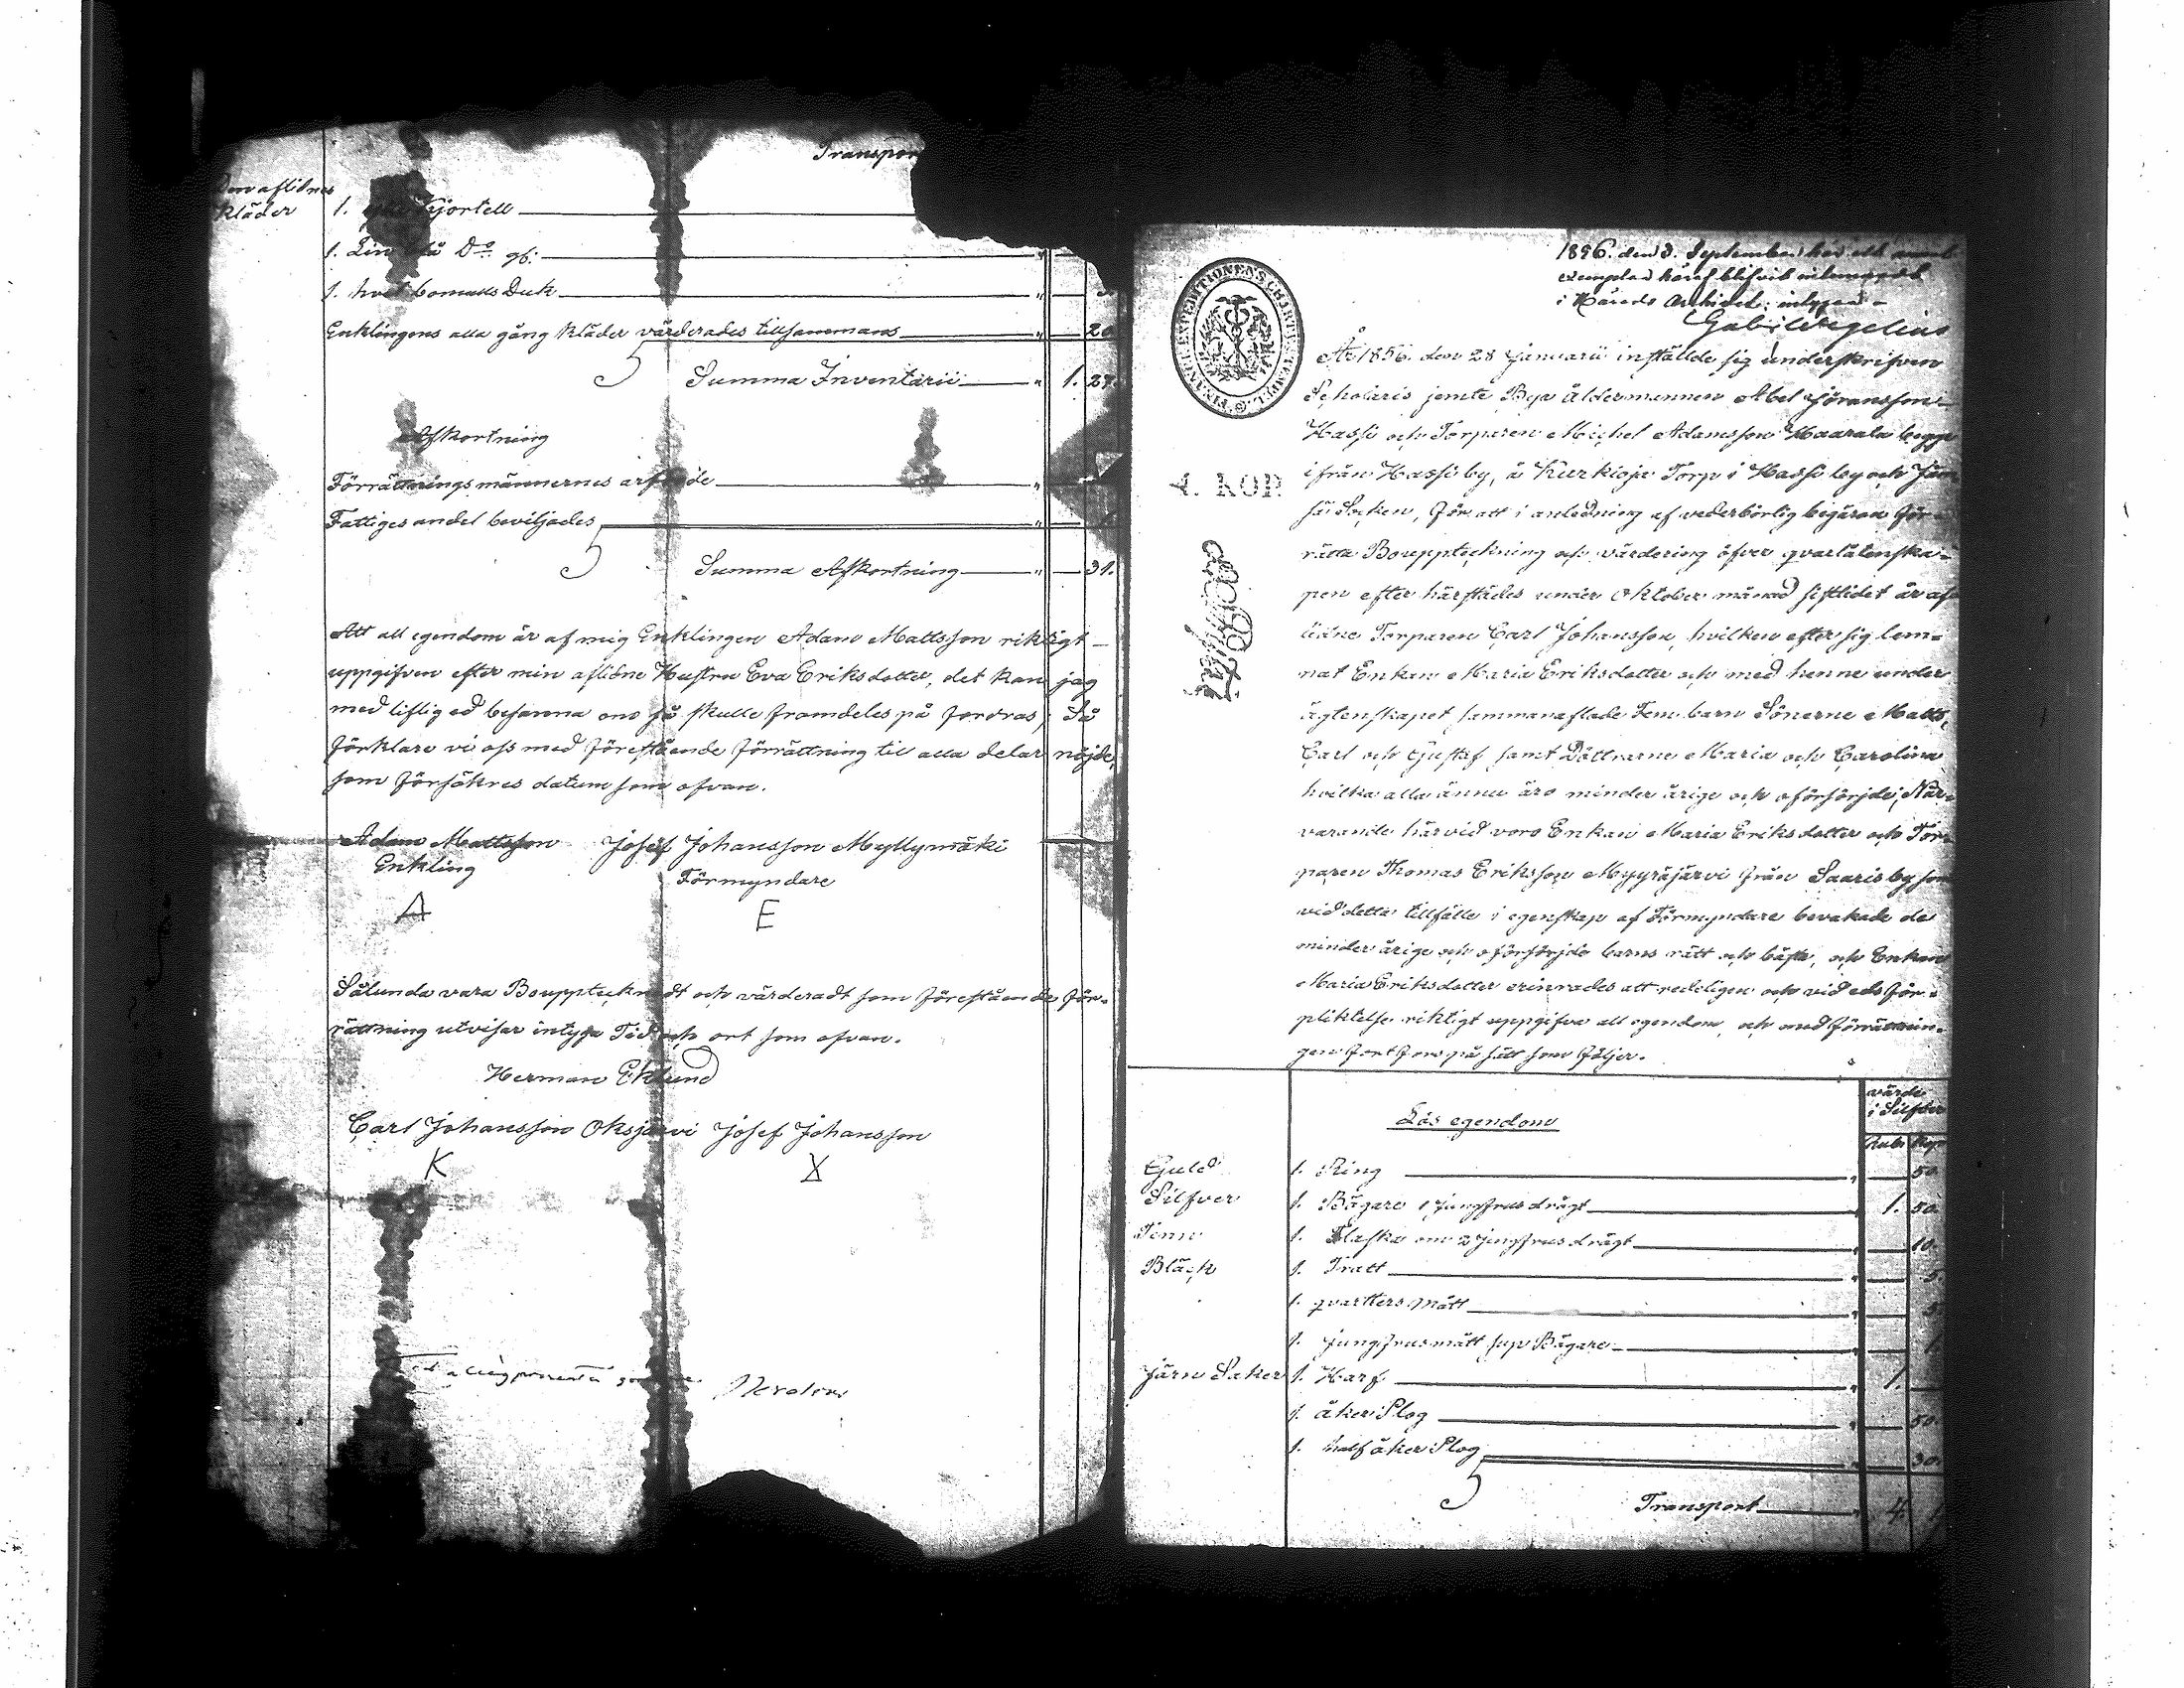 Transport
Den aflidnes
kläder
1. Kjortell
1. Lin blå Do gf:
1. hvit bomulls Duk
Enklingens alla gång kläder värderades tillsammans " 20
Summa Inventarii " 1. 27.
Afkortning
Förrättningsmännernes arfvode "
Fattiges andel beviljades "
Summa Afkortning " 31.
Att all egendom är af mig Enklingen Adam Mattsson riktigt
uppgifven efter min aflidne Hustru Eva Eriksdotter, det kan jag
med liflig ed besanna om så skulle framdeles på fordras, Då
förklare vi oss med förestående förrättning til alla delar nöjde,
som försäkres datum som ofvan.
Adam Mattsson Josef Johansson Myllymäki
Enkling Förmyndare
A E
Sålunda vara Boupptecknadt och värderadt som förestående för-
rättning utvisar intyga Tid och ort som ofvan.
Herman Eklund
Carl Johansson Oksjärvi Josef Johansson
K X
1856. den 3. September har ett
exemplar häraf blifvit inlemnadt
i Härads Arkivet; intygar
Gab: Wegelius
FINANCE EXPEDITIONENS CHARTÆ STEMPEL
4. KOP.
År 1856. den 28 Januarii inställde sig underskrifven
Scholaris jemte By åldermannen Abel Jöransson
Hassi och Torparen Michel Adamsson Haarala begge
ifrån Hassi by, å Kurkioja Torp i Hassi by och Jäm
sä Socken, för att i anledning af vederbörlig begäran för-
rätta Bouppteckning och värdering öfver qvarlåtenska-
pen efter härstädes under Oktober månad sistlidet år af-
lidne Torparen Carl Johansson, hvilken efter sig lem-
nat Enkan Maria Eriksdotter och med henne under
ägtenskapet sammanaflade Fem barn Sönerne Matts,
Carl och Gustaf samt Döttrarne Maria och Carolina
hvilka alla ännu äro minder årige och oförsörjde; När-
varande härvid voro Enkan Maria Eriksdotter och Tor-
paren Thomas Eriksson Myyräjärvi från Saaris by som
vid detta tillfälle i egenskap af Förmyndare bevakade de
minder årige och oförsörjde barns rätt och bästa, och Enkan
Maria Eriksdotter erinrades att redeligen och vid eds för-
pliktelse riktigt uppgifva all egendom, och med förrättnin-
gen fortfors på sätt som följer.
Lös egendom
värde
i Silfver
Rub. Kop.
Guld 1. Ring " 50.
Silfver 1. Bägare 1 jungfrus drägt " 1. 50.
Tenn 1. Flaska om 2 jungfrus drägt " 10.
Bläck 1. Tratt " 5.
1. qvarters mått " 5.
1. jungfrus mått sup Bägare "
Järn Saker 1. Harf " 1.
1. åker Plog " 50.
1. half åker Plog " 30.
Transport " 4.